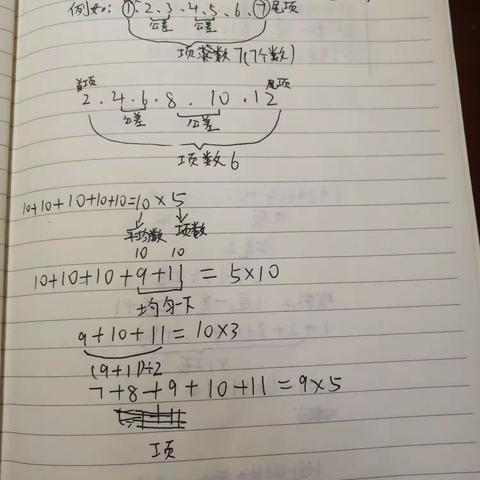 例如: ①·2·3·4·5·6·⑦尾项
公差 公差
项数 7(7个数)
首项 尾项
2·4·6·8·10·12
公差 公差
项数 6
10+10+10+10+10=10×5
平均数 项数
10 10
10+10+10+9+11=5×10
均匀一下
9+10+11=10×3
(9+11)÷2
7+8+9+10+11=9×5
项